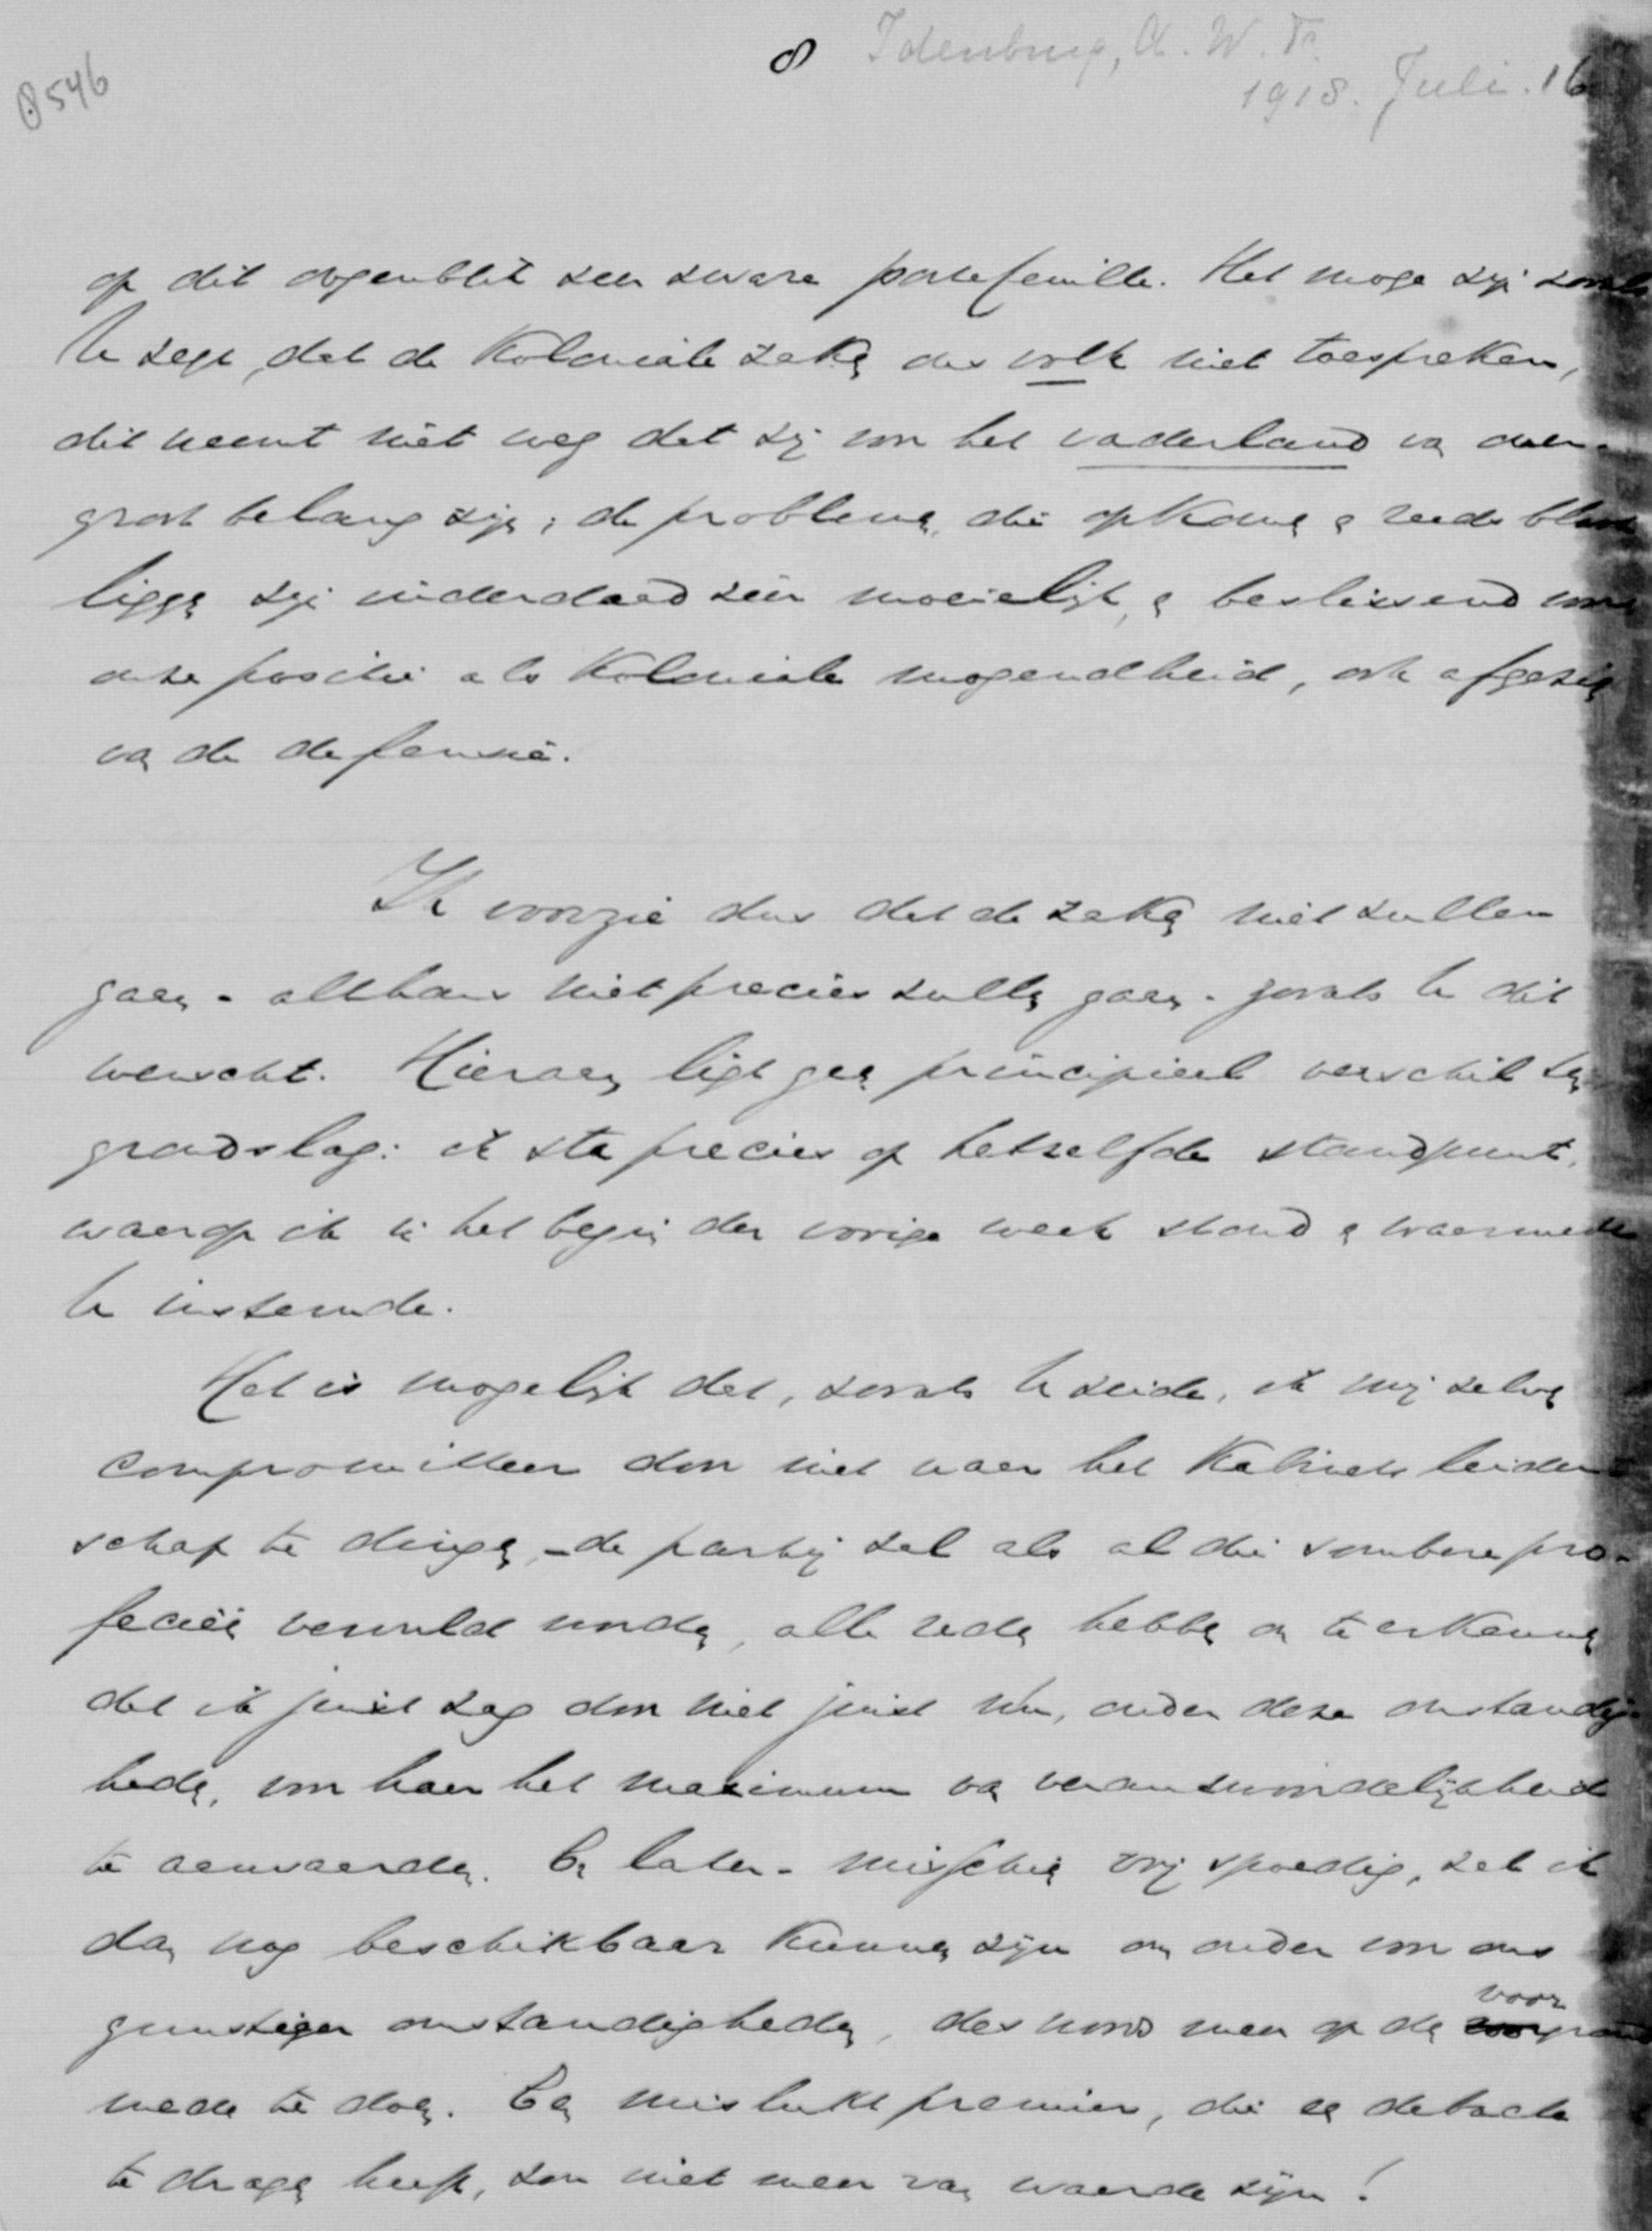 8546
8 Idenburg, A. W. F.
1918. Juli. 16
op dit oogenblik zeer zware portefeuille. Het moge zijn zooals
U zegt, dat de Koloniale zaken ons volk niet toespreken,
dit neemt niet weg dat zij voor het vaderland van zeer
groot belang zijn; de problemen, die opkomen en reeds bloot
liggen zijn inderdaad zéér moeielijk, en beslissend voor
onze positie als Koloniale mogendheid, ook afgezien
van de defensie.
Ik voorzie dus dat de zaken niet zullen
gaan - althans niet precies zullen gaan - zooals U dit
wenscht. Hieraan ligt geen principieel verschil ten
grondslag: ik sta precies op hetzelfde standpunt,
waarop ik in het begin der vorige week stond en waarmede
U instemde.
Het is mogelijk dat, zooals U zeide, ik mij zelven
compromitteer door niet naar het Kabinetsleider
schap te dingen, - de partij zal als al die sombere pro-
fecieën vervuld worden, alle reden hebben om te erkennen
dat ik juist zag door niet juist nu, onder deze omstandig-
heden, voor haar het maximum van verantwoordelijkheid
te aanvaarden. En later - misschien vrij spoedig, zal ik
dan nog beschikbaar kunnen zijn om onder voor ons
gunstiger omstandigheden, des noods meer op den voorgrond
mede te doen. Een mislukt premier, die een debacle
te dragen heeft, zou niet meer van waarde zijn!